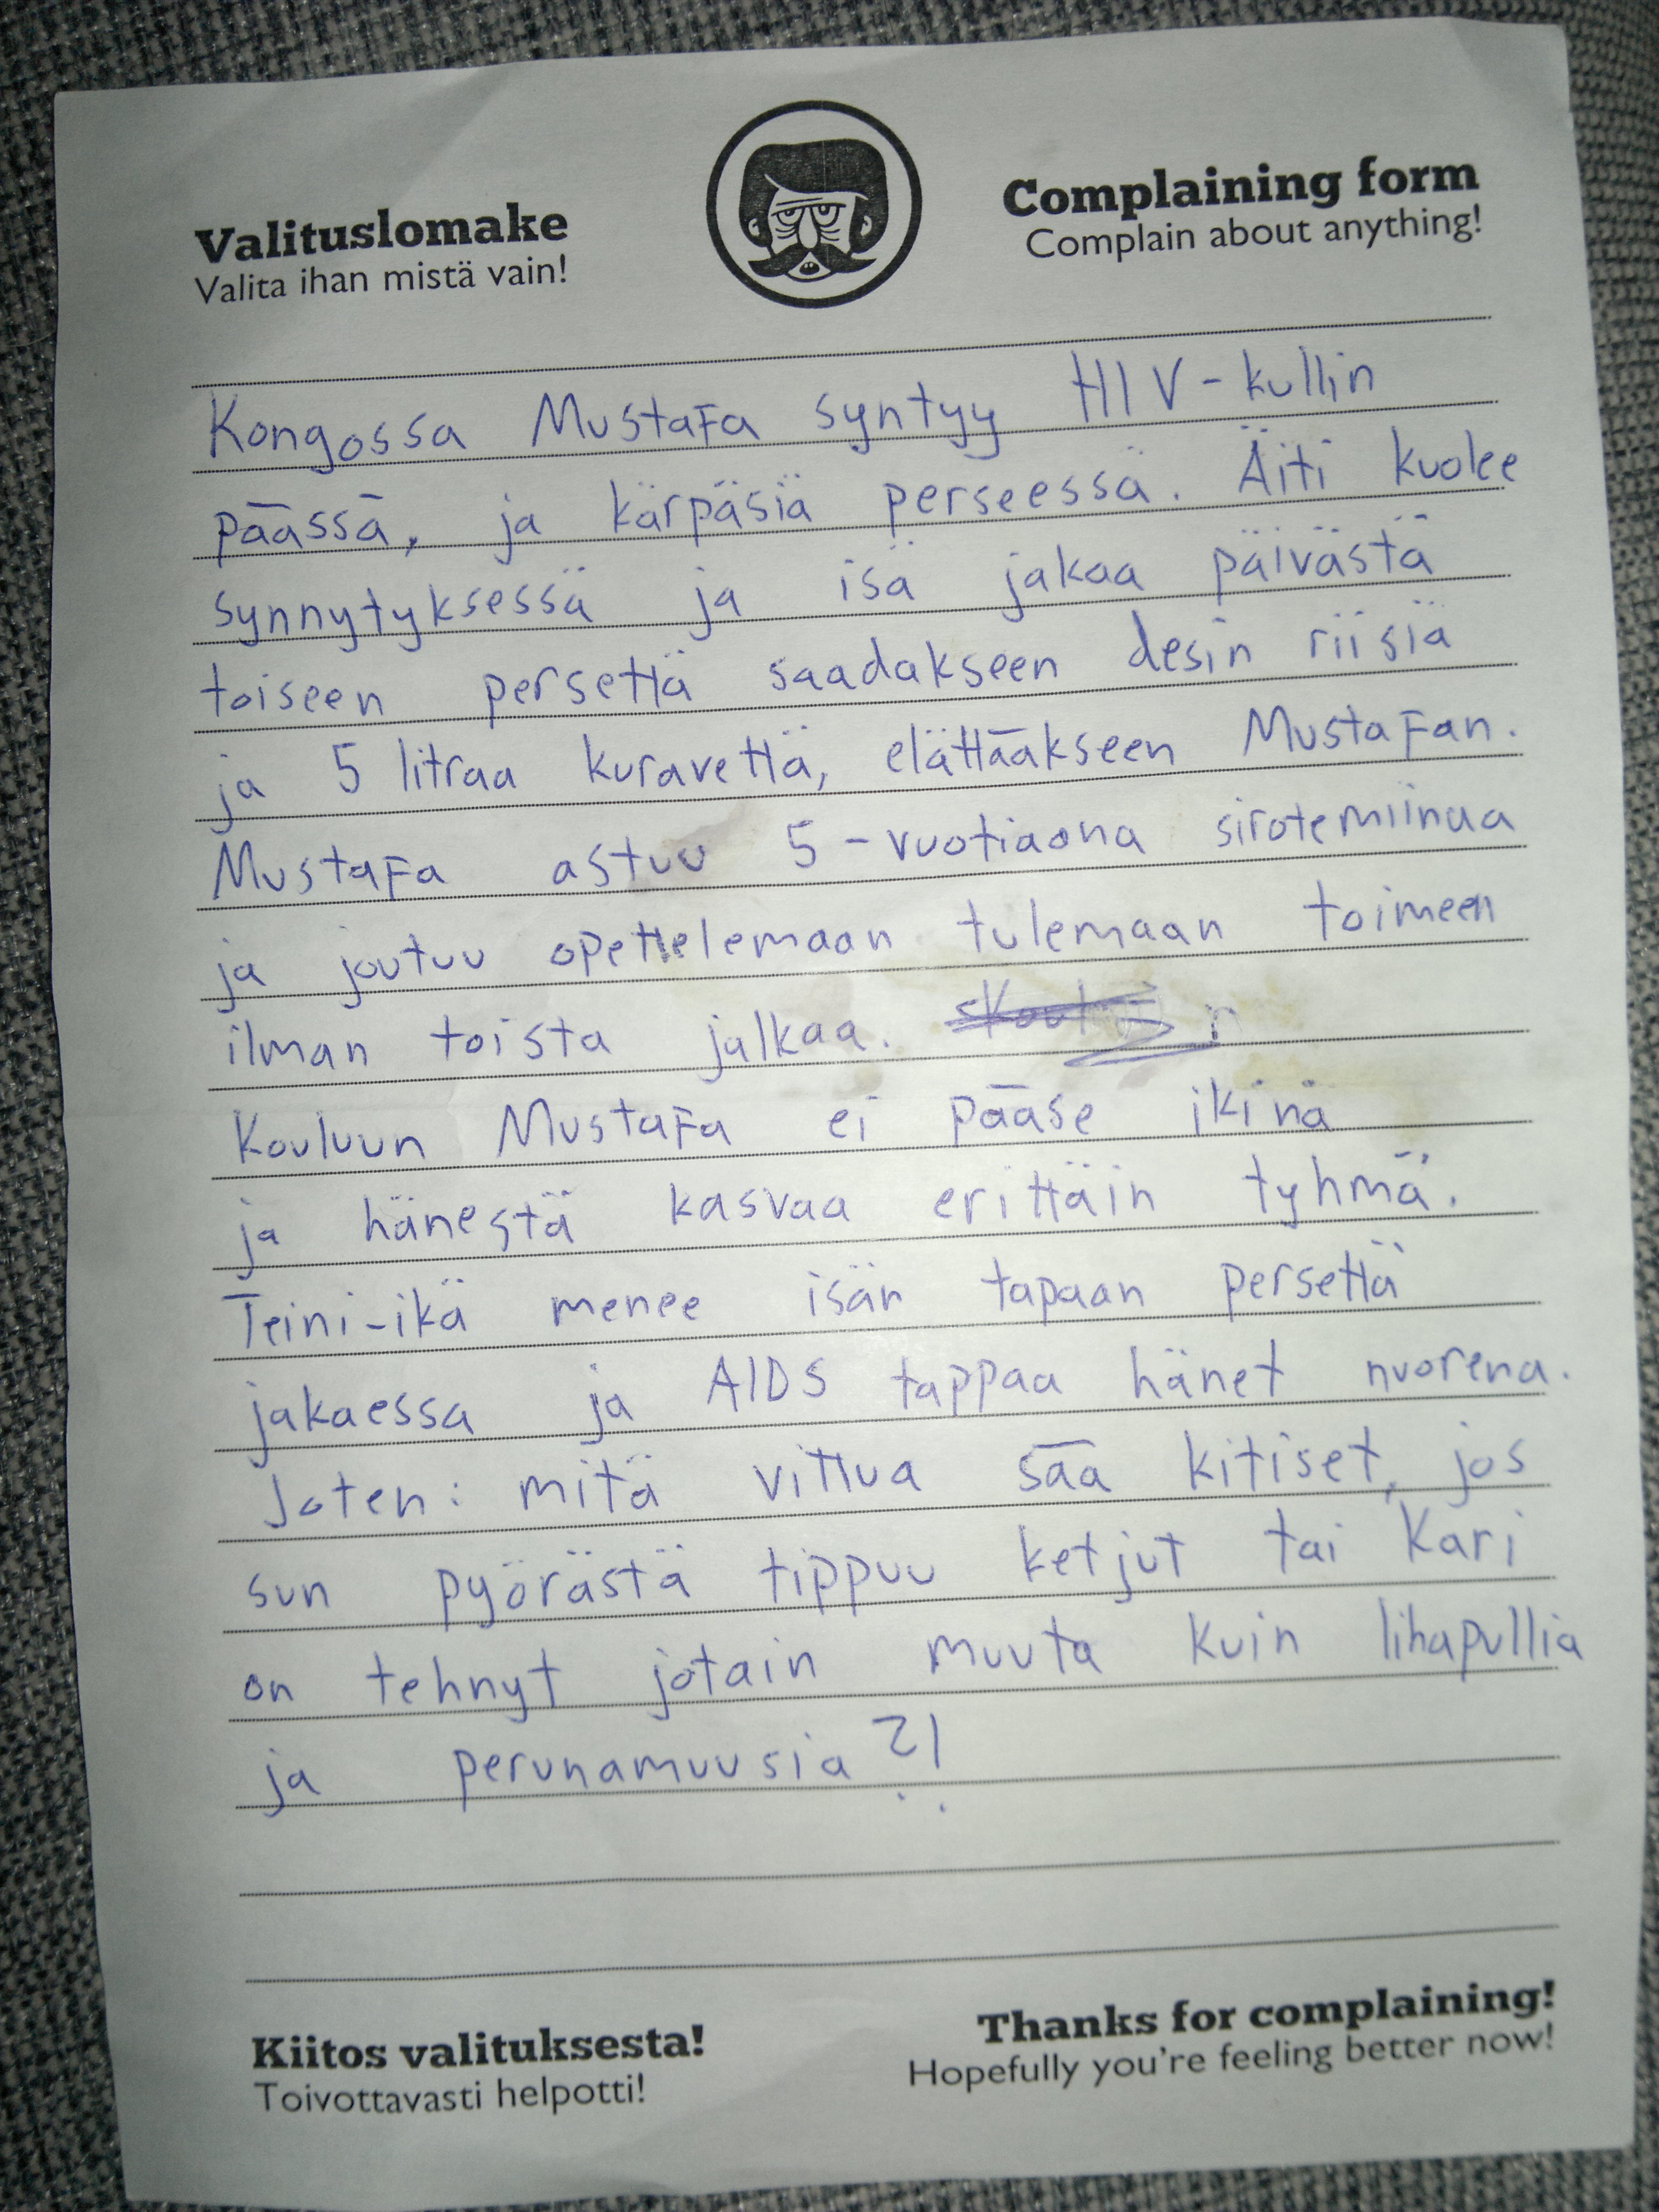 Valituslomake
Valita ihan mistä vain!
Complaining form
Complain about anything!
Kongossa Mustafa syntyy HIV-kullin
päässä, ja kärpäsiä perseessä. Äiti kuolee
synnytyksessä ja isä jakaa päivästä
toiseen persettä saadakseen desin riisiä
ja 5 litraa kuravettä, elättääkseen Mustafan.
Mustafa astuu 5-vuotiaana sirotemiinaa
ja joutuu opettelemaan tulemaan toimeen
ilman toista jalkaa.
Kouluun Mustafa ei pääse ikinä
ja hänestä kasvaa erittäin tyhmä.
Teini-ikä menee isän tapaan persettä
jakaessa ja AIDS tappaa hänet nuorena.
Joten: mitä vittua sää kitiset, jos
sun pyörästä tippuu ketjut tai Kari
on tehnyt jotain muuta kuin lihapullia
ja perunamuusia?!
Kiitos valituksesta!
Toivottavasti helpotti!
Thanks for complaining!
Hopefully you're feeling better now!